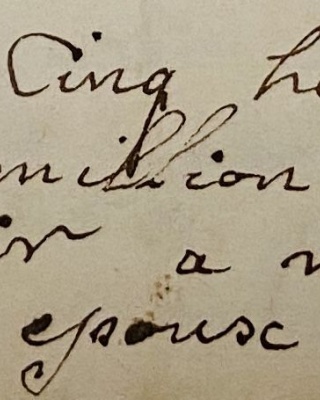 Cinq
million
a
epouse